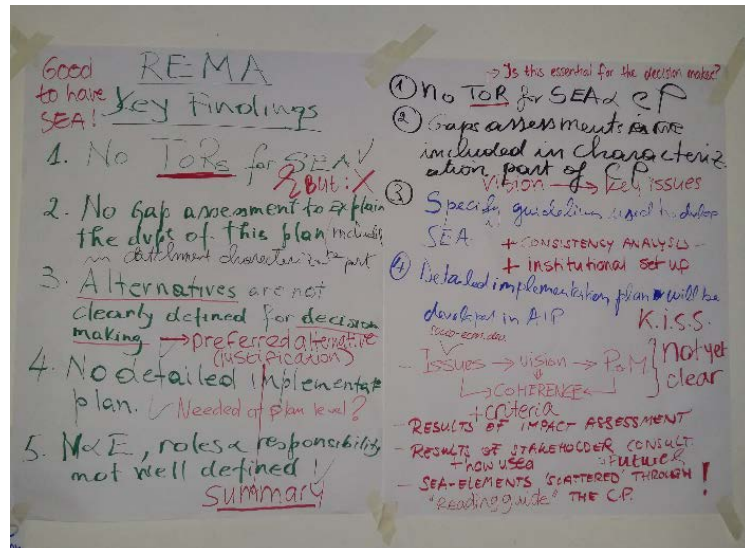 Good
to have
SEA!
REMA
Key Findings
1. No ToRs for SEA ✓
But: X
2. No Gap assessment to explain
the dvps of this plan
in catchment part
3. Alternatives are not
clearly defined for decision
making → preferred alternative
(justification)
4. No detailed
plan. ✓ Needed at plan level?
5. M&E, roles & responsibility
not well defined !
Summary
→ Is this essential for the decision maker?
① No ToR for SEA & CP
② Gaps assessments are
included in characteriz
ation part of CP
Vision → key issues
③ Specify guidelines used to develop
SEA
+ CONSISTENCY ANALYSIS -
+ institutional set up
④ Detailed implementation plan will be
develop in AIP
K.I.S.S.
- Issues → vision → PoM
not yet
clear
COHERENCE
+ criteria
- RESULTS OF IMPACT ASSESSMENT
- RESULTS OF STAKEHOLDER CONSULT.
+ how used
+ future
- SEA-ELEMENTS 'SCATTERED' THROUGH
"Reading guide" THE C.P. !